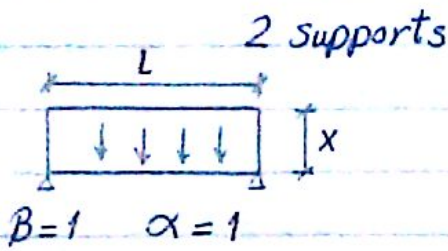 2 supports
L
x
B=1 α=1